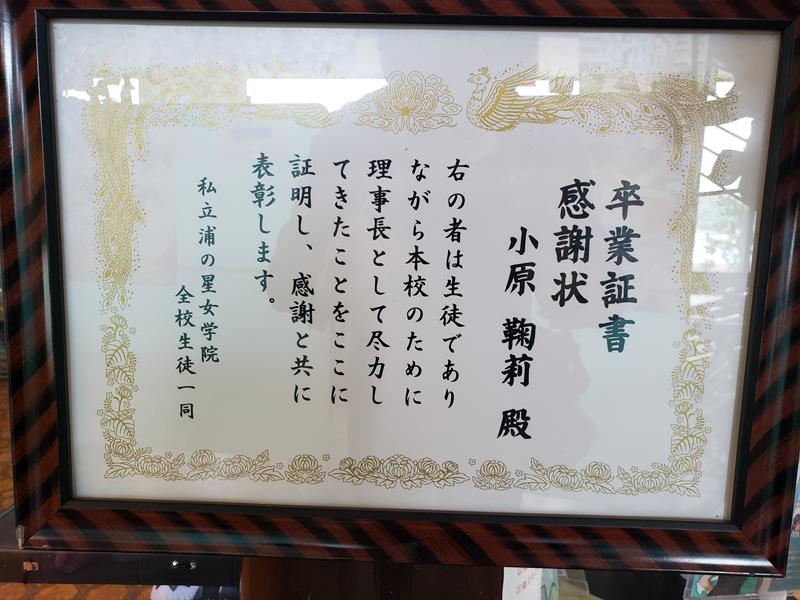 卒業証書
感謝状
小原 鞠莉 殿
右の者は生徒であり
ながら本校のために
理事長として尽力し
てきたことをここに
証明し、感謝と共に
表彰します。
私立浦の星女学院
全校生徒一同